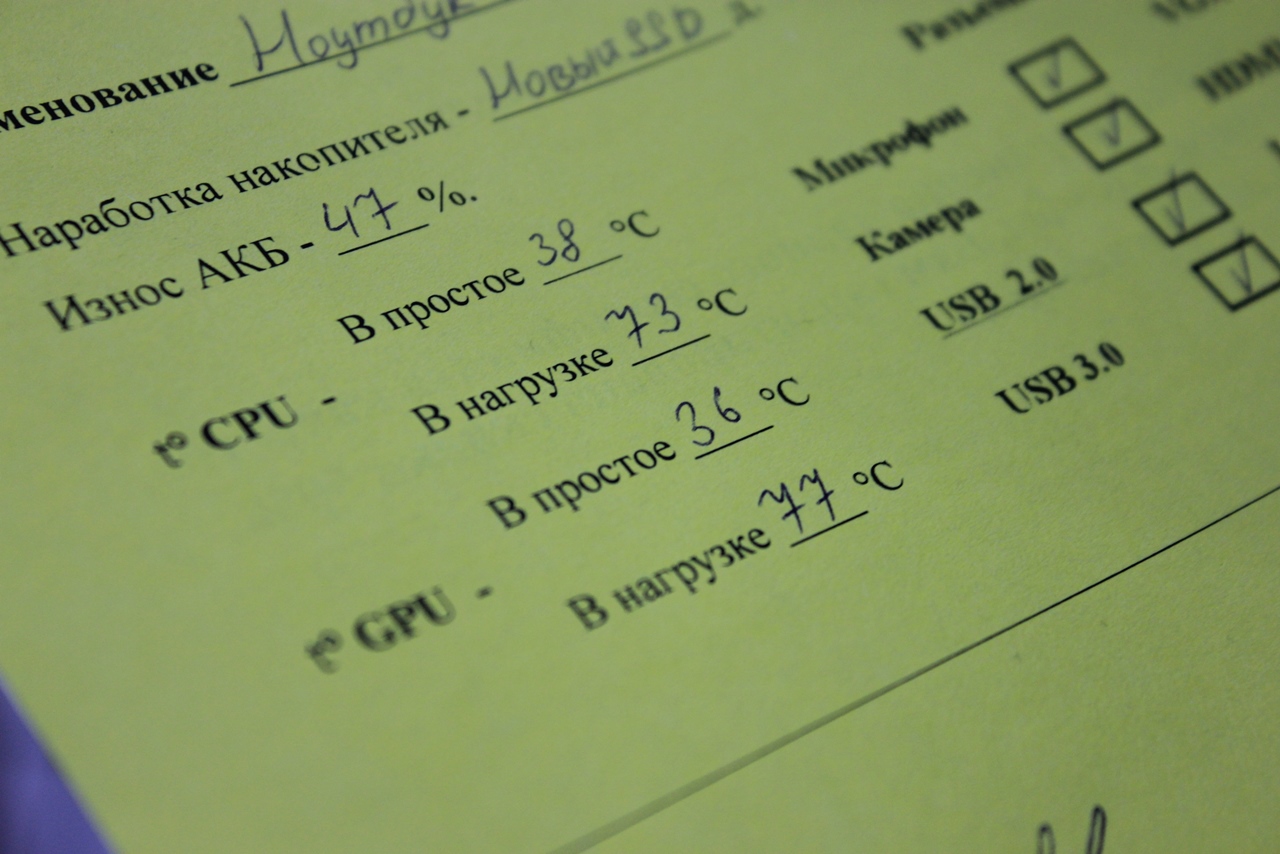 менование Ноутбук
Наработка накопителя - Новый SSD
Износ АКБ - 47 %.
t° CPU -
В простое 38 °C
В нагрузке 73 °C
t° GPU -
В простое 36 °C
В нагрузке 77 °C
Микрофон
Камера
USB 2.0
USB 3.0
HDMI